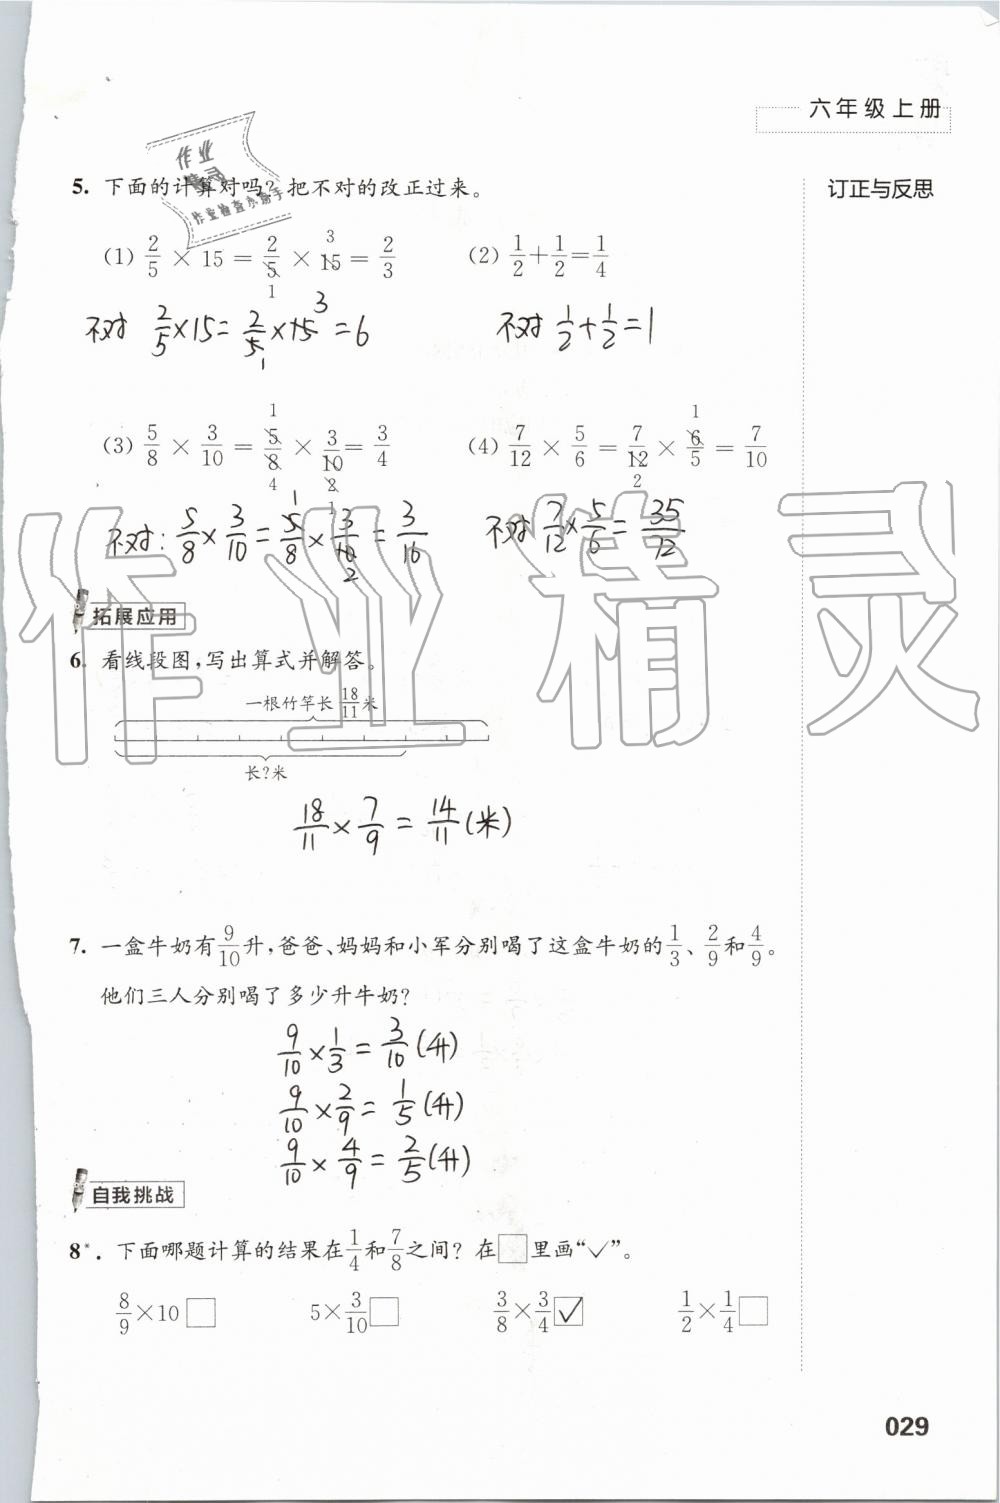 六年级上册
订正与反思
作业精灵
作业检查小助手
5. 下面的计算对吗?把不对的改正过来。
(1) 2/5 × 15 = 2/5 × 15 = 2/3 (2) 1/2 + 1/2 = 1/4
3
1
不对 2/5 × 15 = 2/5 × 15 = 6 不对 1/2 + 1/2 = 1
3
1
(3) 5/8 × 3/10 = 5/8 × 3/10 = 3/4 (4) 7/12 × 5/6 = 7/12 × 6/5 = 7/10
1 1
4 2 2
1
不对: 5/8 × 3/10 = 5/8 × 3/10 = 3/16 不对 7/12 × 5/6 = 35/72
1
2
作业精灵
拓展应用
6. 看线段图,写出算式并解答。
一根竹竿长 18/11 米
长?米
18/11 × 7/9 = 14/11 (米)
7. 一盒牛奶有 9/10 升,爸爸、妈妈和小军分别喝了这盒牛奶的 1/3、2/9 和 4/9。
他们三人分别喝了多少升牛奶?
9/10 × 1/3 = 3/10 (升)
9/10 × 2/9 = 1/5 (升)
9/10 × 4/9 = 2/5 (升)
自我挑战
8*. 下面哪题计算的结果在 1/4 和 7/8 之间?在□里画“✓”。
8/9 × 10 □ 5 × 3/10 □ 3/8 × 3/4 ☑ 1/2 × 1/4 □
029